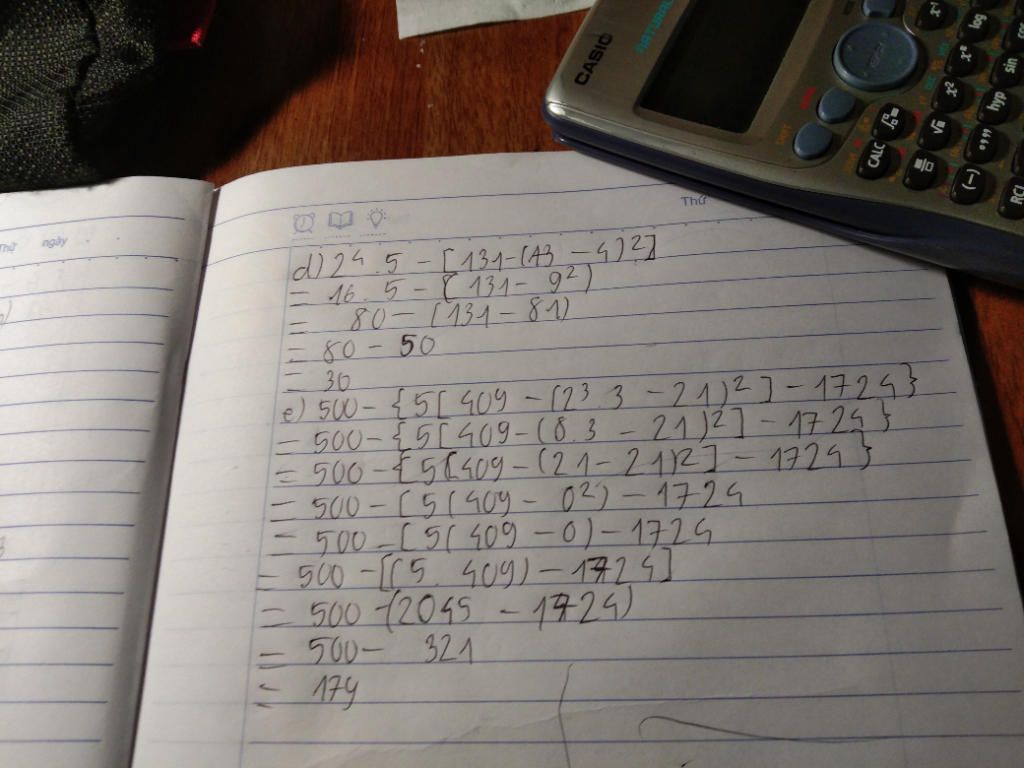 CASIO
NATURAL
x⁻¹
log
x³
x²
sin
hyp
CALC
√
(–)
RCL
Thứ ngày
Thứ
d) 2⁴.5 - [131-(13 - 4)²]
= 16.5 - [131 - 9²)
= 80 - (131 - 81)
= 80 - 50
= 30
e) 500 - {5[409 - (2³ 3 - 21)²] - 1724}
= 500 - {5[409 - (8.3 - 21)²] - 1724}
= 500 - {5[409 - (21 - 21)²] - 1724}
= 500 - [5(409 - 0²) - 1724
= 500 - [5(409 - 0) - 1724
= 500 - [(5. 409) - 1724]
= 500 - (2045 - 1724)
= 500 - 321
= 179